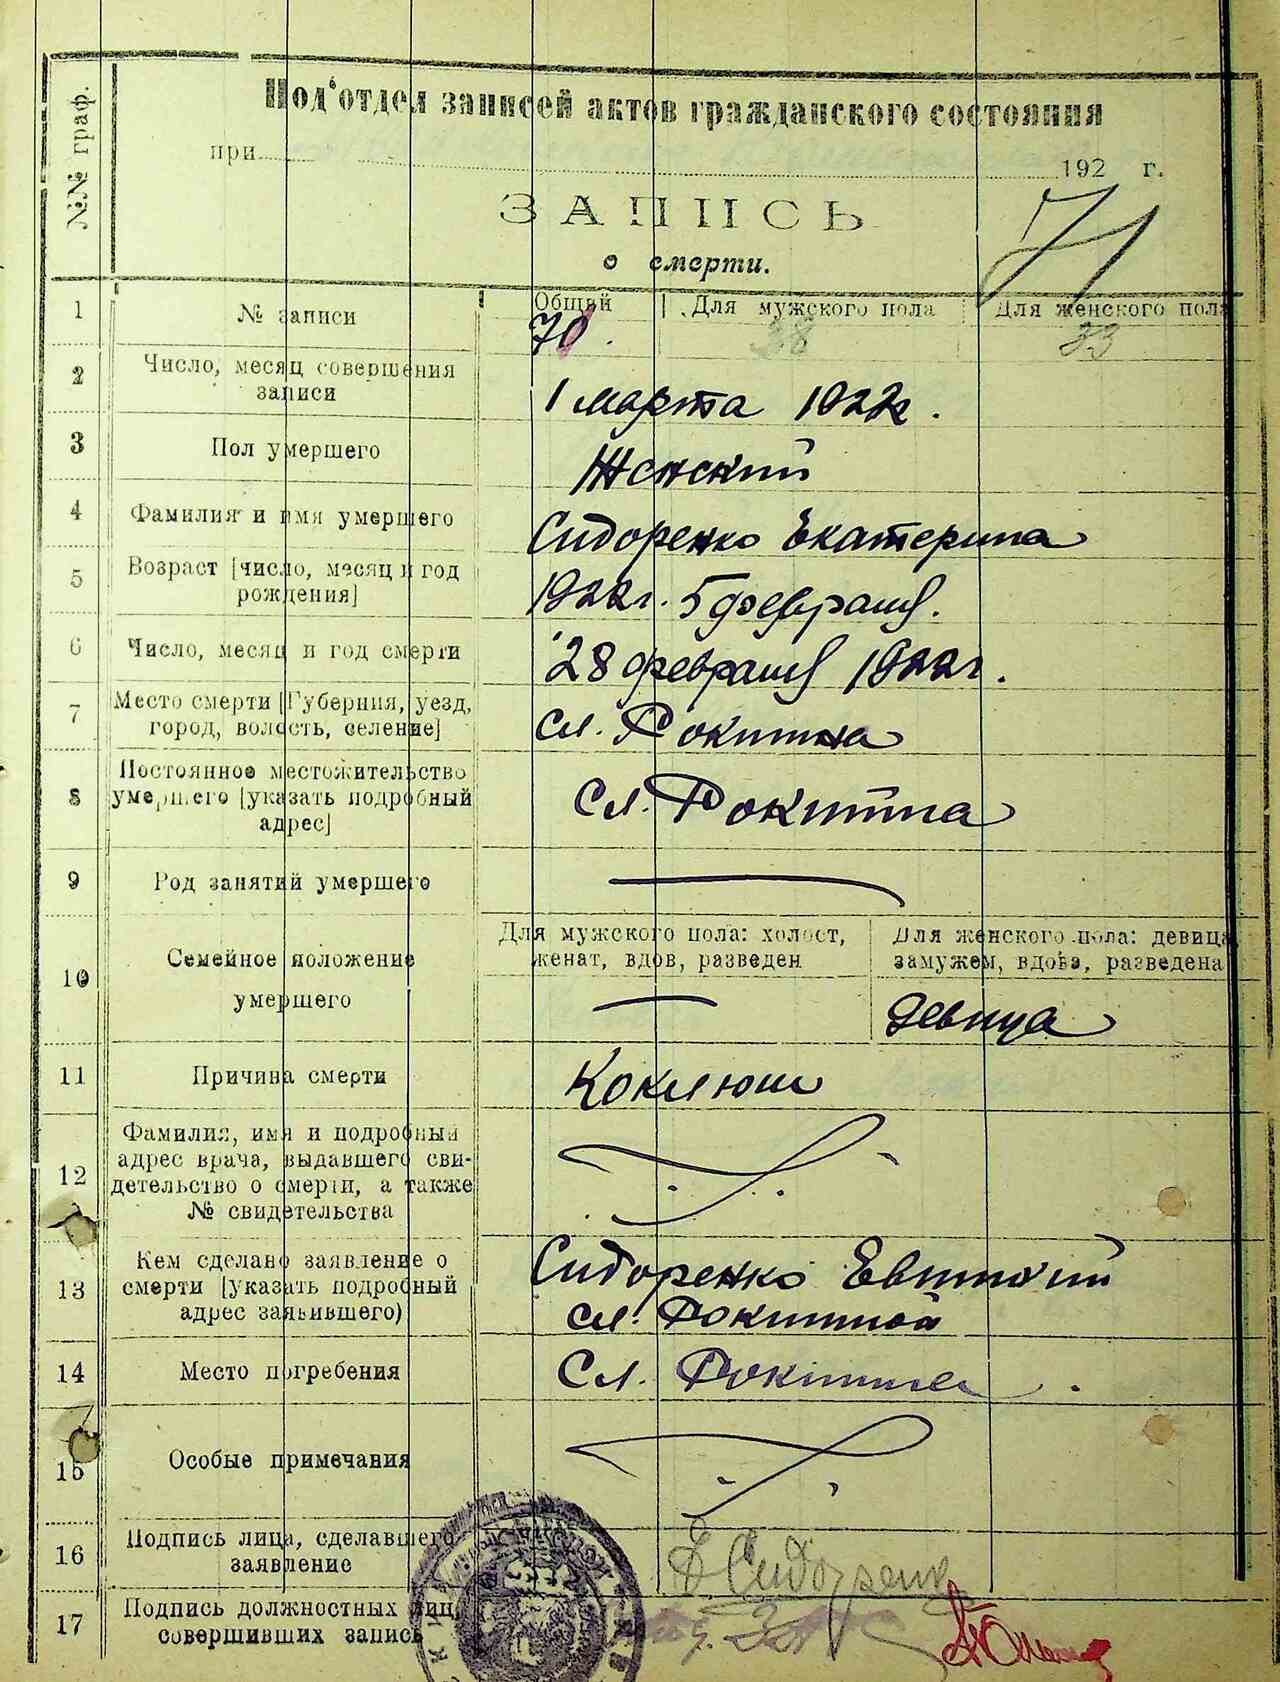 Под'отдел записей актов гражданского состояния
№№ граф.
при 192 г.
ЗАПИСЬ
о смерти.
71
1 № записи Общий Для мужского пола Для женского пола
70 38 33
2 Число, месяц совершения записи
1 марта 1922г.
3 Пол умершего Женский
4 Фамилия и имя умершего Сидоренко Екатерина
5 Возраст [число, месяц и год рождения]
1922г. 5 февраля.
6 Число, месяц и год смерти 28 февраля 1922г.
7 Место смерти [Губерния, уезд,
город, волость, селение] сл. Рокитна
Постоянное местожительство
8 умершего [указать подробный сл. Рокитна
адрес]
9 Род занятий умершего
Для мужского пола: холост, Для женского пола: девица,
женат, вдов, разведен замужем, вдова, разведена
10 Семейное положение
умершего девица
11 Причина смерти Коклюш
Фамилия, имя и подробный
адрес врача, выдавшего сви-
12 детельство о смерти, а также
№ свидетельства
Кем сделано заявление о Сидоренко
13 смерти [указать подробный сл. Рокитной
адрес заявившего)
14 Место погребения Сл. Рокитна
15 Особые примечания
16 Подпись лица, сделавшего
заявление Сидоренко
17 Подпись должностных лиц,
совершивших запись